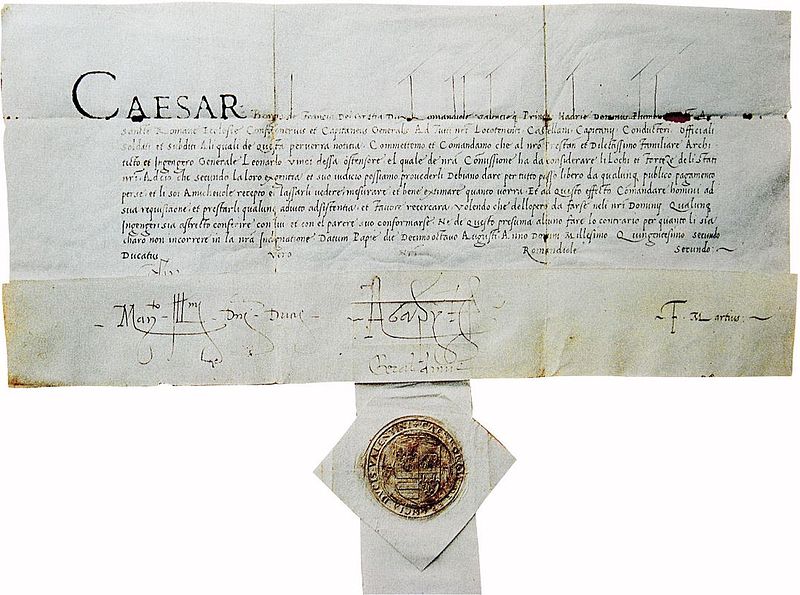 CAESAR Borgia de Francia Dei Gratia Dux Romandiole Valentieq Princeps Hadrie Dominus Plumbini
Sancte Romane Ecclesie Confalonerius et Capitaneus Generalis Ad Tutti nri Locotenenti Castellani Capitanij Conductieri Officiali
Soldati et Subditi Ali quali de Questa perverra notitia Commettemo et Comandamo che al nro Prestan et Dilectissimo Familiare Archi
tecto et Ingengero Generale Leonardo Vinci dessa ostensore el quale de nra Comissione ha da considerare li Lochi et Forteze deli Stati
nri Adcio che secundo la loro exigentia et suo iudicio possiamo provederli Debiano dare per tutto passo libero da qualunq publico pagamento
per se et li soi Amichevole recepto et lassarli vedere misurare et bene extimare quanto vorra Et ad Questo effecto Comandare homini ad
sua requisitione et prestarli qualunq adiuto adsistentia et Favore recercara Volendo che dellopere da farse neli nri Dominij Qualunq
Ingengeri sia astrecto conferire con lui et con el parere suo conformarse Ne de Questo presuma alcuno fare lo contrario per quanto li sia
charo non incorrere in la nra Indegnatione Datum Papie die Decimooctavo Augusti Anno Domini Millesimo Quingentesimo Secundo
Ducatus Vero Nri Romandiole Secundo
Man.to Ill.mi Dni Ducis Agapy F. Martius
VALENTINI
DVCIS